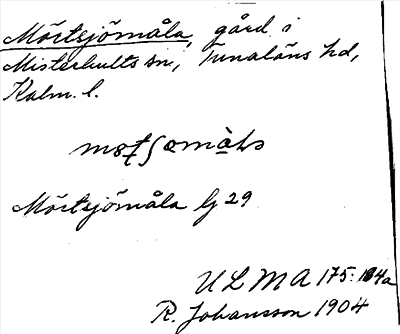 Mörtsjömåla, gård i
Misterhults sn, Tunaläns hd,
Kalm. l.
Mörtsjömåla lj 29
ULMA 175: 184a
R. Johansson 1904